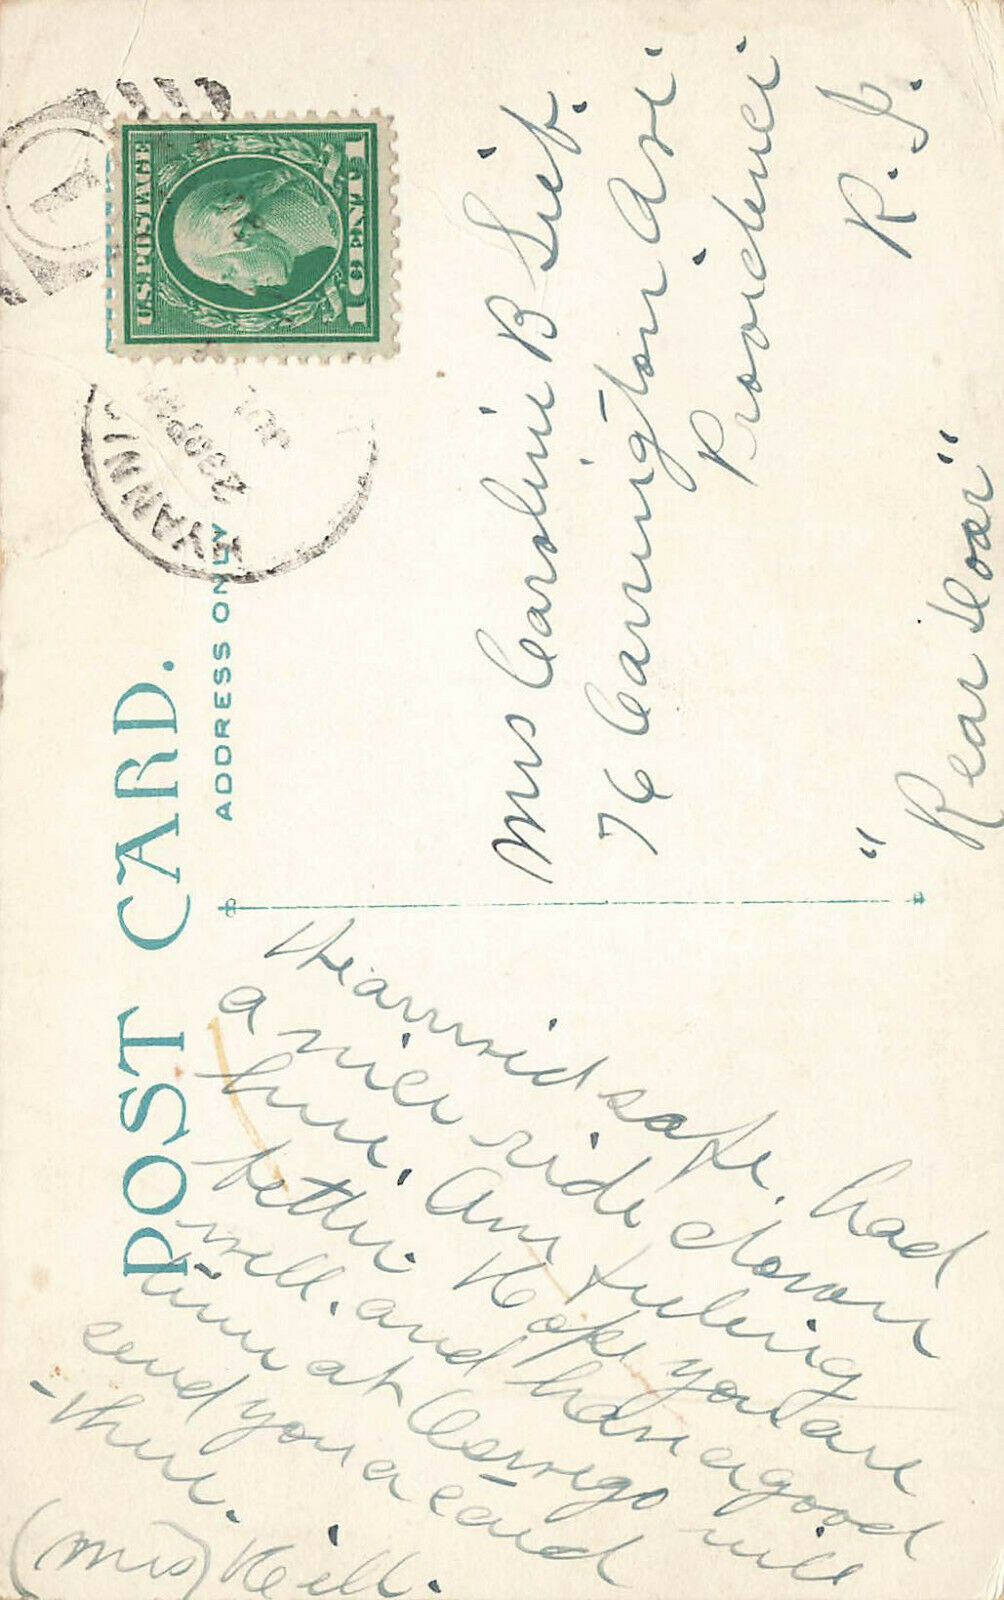 POST CARD.
ADDRESS ONLY
U.S. POSTAGE
1 CENT 1
YANNI
230 PM
JUL
Hearrried safe, had
a nice ride down
here. Am feeling
better. Hope you are
well. and have a good
time at Oswego will
send you a card
there.
(Mrs) Heill.
Mrs Caroline B Sief.
76 Carrington Ave
Providence
R. I.
"Rear door"